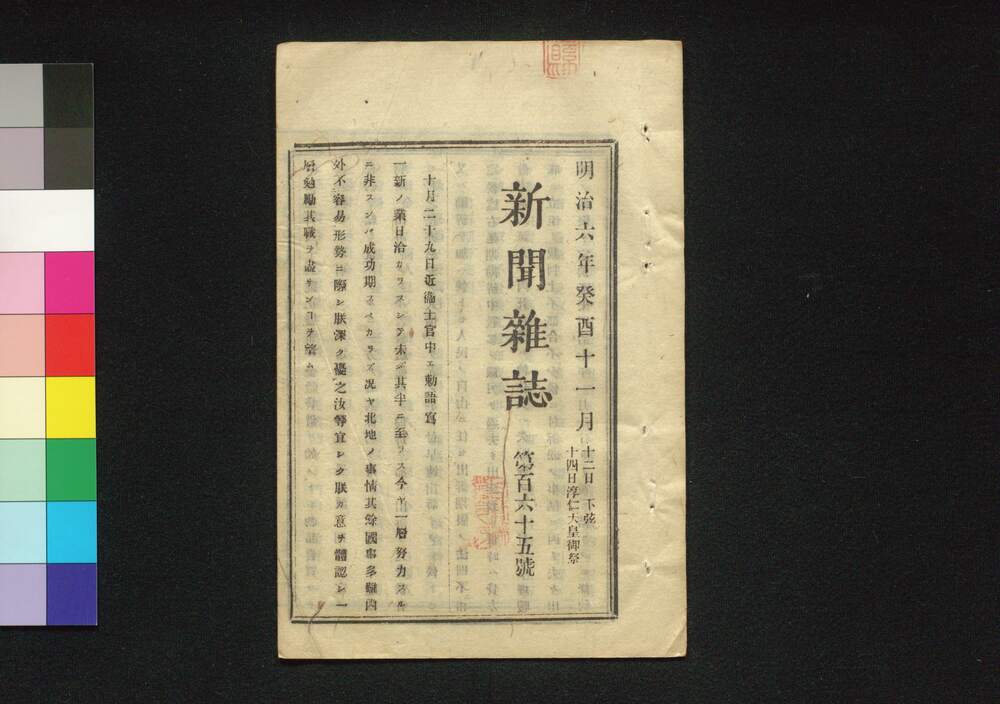 明治六年癸酉十一月
十二日 下弦
十四日淳仁天皇御祭
新聞雜誌
第百六十五號
十月二十九日近衞士官中ェ勅諭寫
一新ノ業日洽カラスシテ未ダ其半ニ至ラス今ヤ一層努力スル
ニ非スンバ成功期スベカラズ况ヤ北地ノ事情其餘國事多難內
外不容易形勢ニ際シ朕深ク憂之汝等宜シク朕ガ意ヲ體認シ一
層勉勵其職ヲ盡サンコヲ望ム